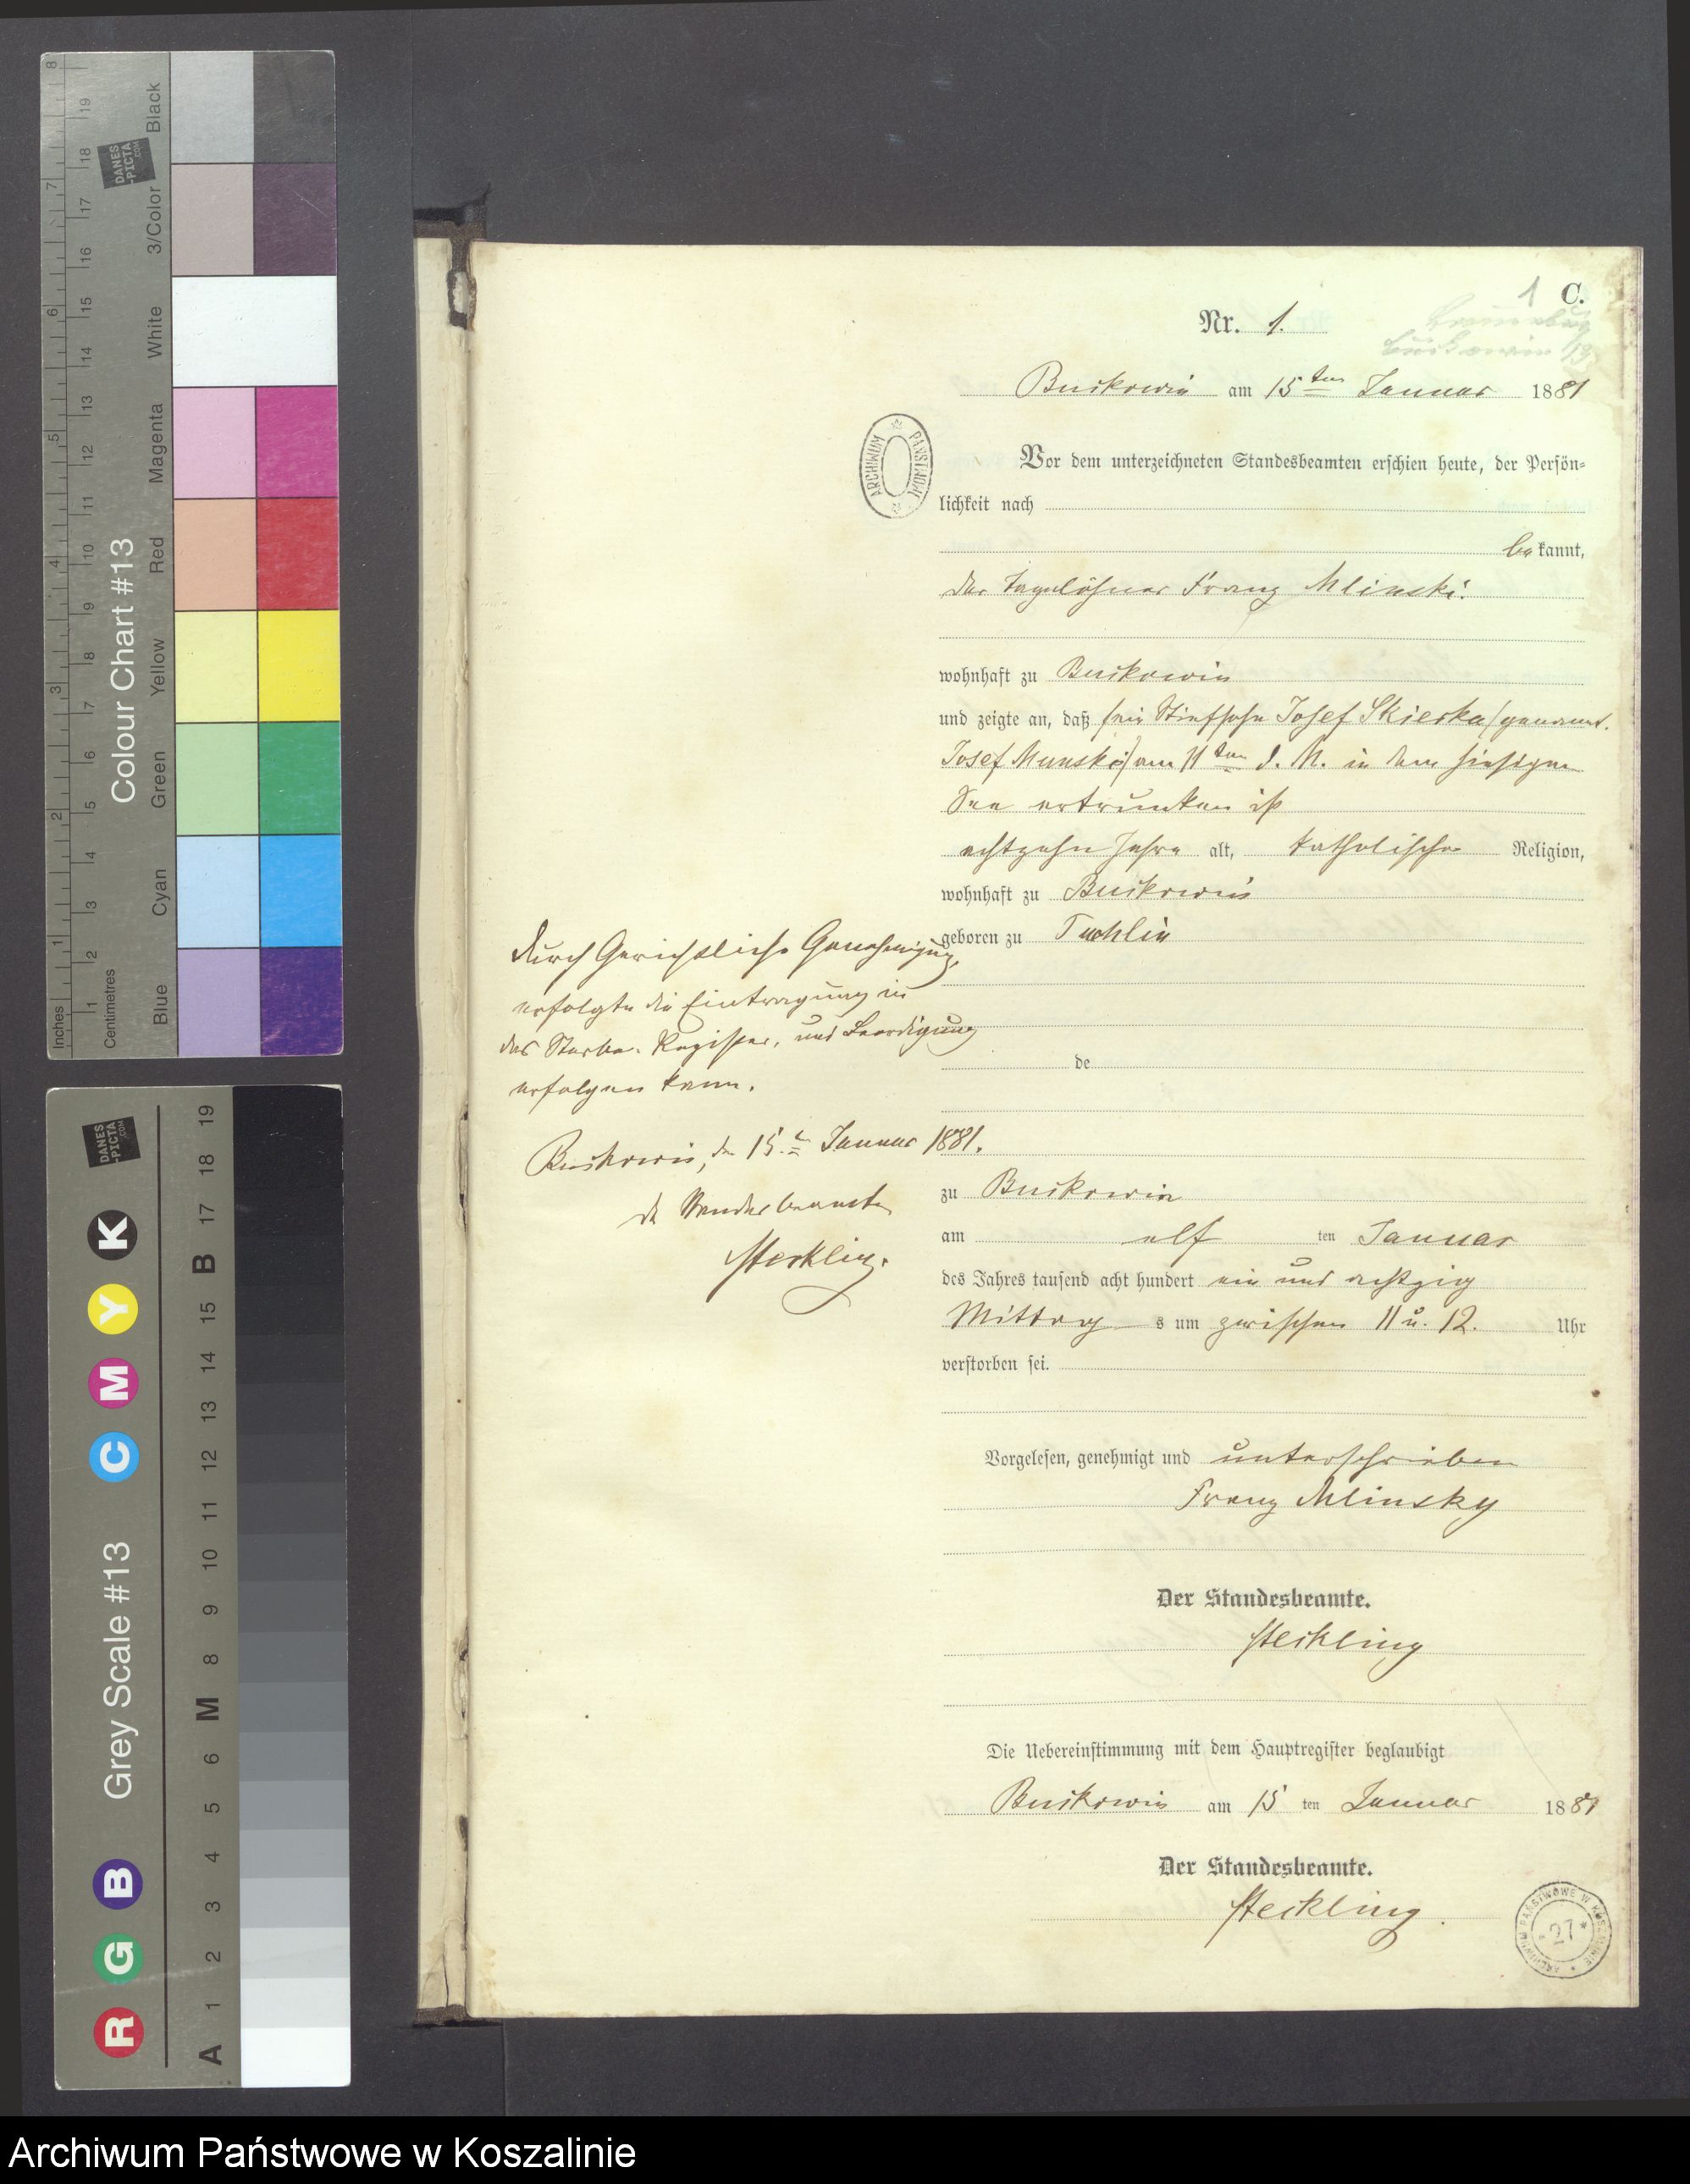 1 C.
Nr. 1.
Buckowin am 15ten Januar 1881
Vor dem unterzeichneten Standesbeamten erschien heute, der Persön-
lichkeit nach
bekannt,
der Tagelöhner Franz Mlinski.
wohnhaft zu Buckowin
und zeigte an, daß sein Stiefsohn Josef Skierka /genannt
Josef Munski/ am 11ten d. M. in dem hiesigen
See ertrunken ist
achtzehn Jahre alt, katholischer Religion,
wohnhaft zu Buckowin
geboren zu Tuchlin
de
zu Buckowin
am elf ten Januar
des Jahres tausend acht hundert ein und achtzig
Mittag s um zwischen 11 u. 12. Uhr
verstorben sei.
Vorgelesen, genehmigt und unterschrieben
Franz Mlinsky
Der Standesbeamte.
Steckling
Die Uebereinstimmung mit dem Hauptregister beglaubigt
Buckowin am 15 ten Januar 1881
Der Standesbeamte.
Steckling.
Durch Gerichtliche Genehmigung
erfolgte die Eintragung in
das Sterbe-Register, und Beerdigung
erfolgen kann.
Buckowin, den 15. Januar 1881.
der Standesbeamte
Steckling.
ARCHIWUM PAŃSTWOWE
ARCHIWUM PAŃSTWOWE W KOSZALINIE
*27*
Inches 1 2 3 4 5 6 7 8
Centimetres 1 2 3 4 5 6 7 8 9 10 11 12 13 14 15 16 17 18 19
Colour Chart #13
Blue Cyan Green Yellow Red Magenta White 3/Color Black
DANES
-PICTA
.COM
Grey Scale #13
R G B C M Y K
A 1 2 3 4 5 6 M 8 9 10 11 12 13 14 15 B 17 18 19
DANES
-PICTA
.COM
Archiwum Państwowe w Koszalinie